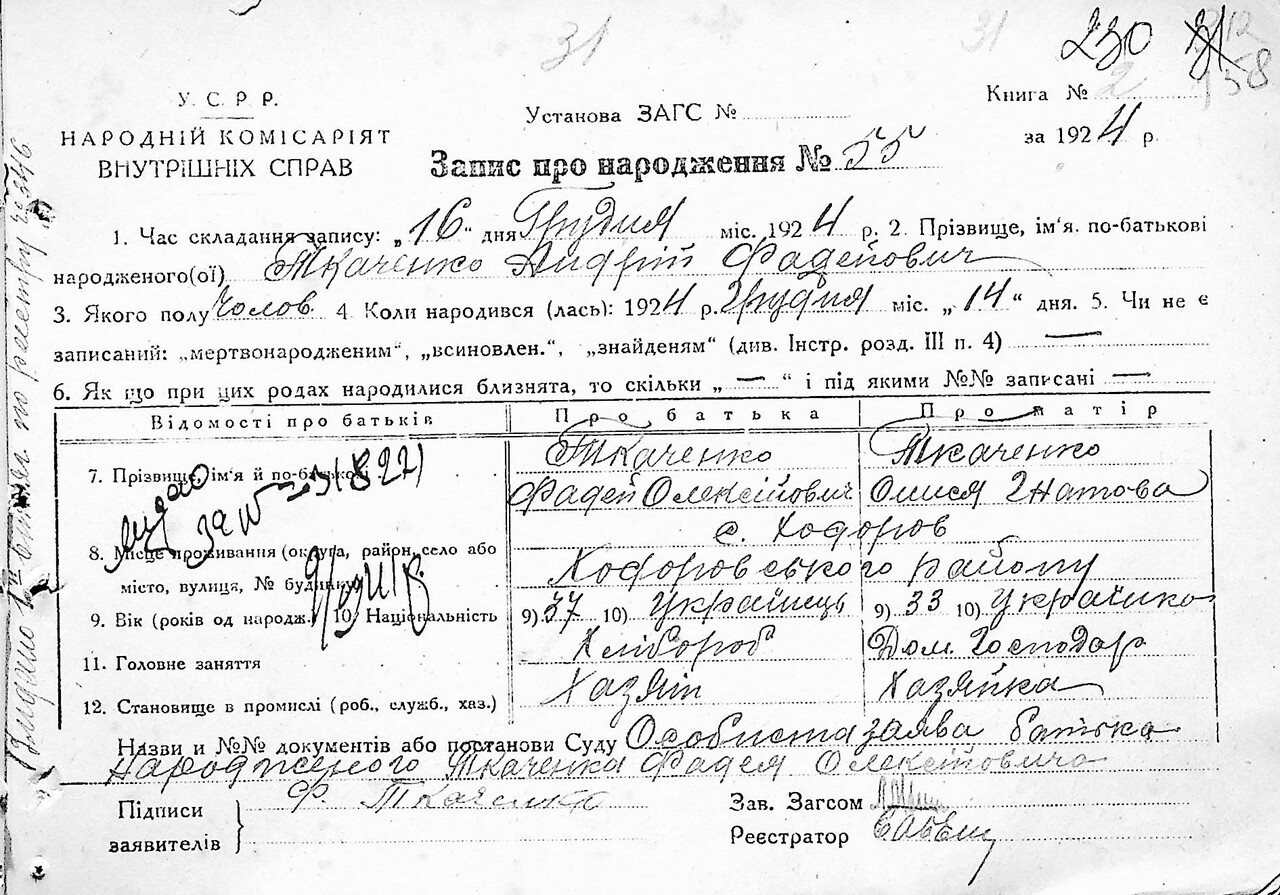 31
31
230
31
12
158
У. С. Р. Р.
НАРОДНІЙ КОМІСАРІЯТ
ВНУТРІШНІХ СПРАВ
Установа ЗАГС №
Книга № 2
за 1924 р.
Запис про народження № 55
1. Час складання запису: „16“ дня Грудня міс. 1924 р. 2. Прізвище, ім'я. по-батькові
народженого(ої) Ткаченко Андрій Фадейович
3. Якого полу Чолов. 4. Коли народився (лась): 1924 р. Грудня міс. „14“ дня. 5. Чи не є
записаний: „мертвонародженим“, „всиновлен.“, „знайденям“ (див. Інстр. розд. III п. 4) —
6. Як що при цих родах народилися близнята, то скільки „ — “ і під якими №№ записані —
Відомості про батьків
Про батька
Про матір
7. Прізвище, ім'я й по-батькові
Ткаченко
Фадей Олексійович
Ткаченко
Олися Гнатова
8. Місце проживання (округа, райрн, село або
місто, вулиця, № будинку)
с. Ходоров
Ходоровського району
9. Вік (років од народж.) 10) Національність
9) 37 10) Українець
9) 33 10) Українка
11. Головне заняття
Хлібороб
Дом. Господар
12. Становище в промислі (роб., служб., хаз.)
Хазяїн
Хазяйка
Назви и №№ документів або постанови Суду Особиста заява батька
народженого Ткаченка Фадея Олексійовича
Підписи
заявителів
Ф. Ткаченко
Зав. Загсом
Реєстратор
Видано
по реєстру